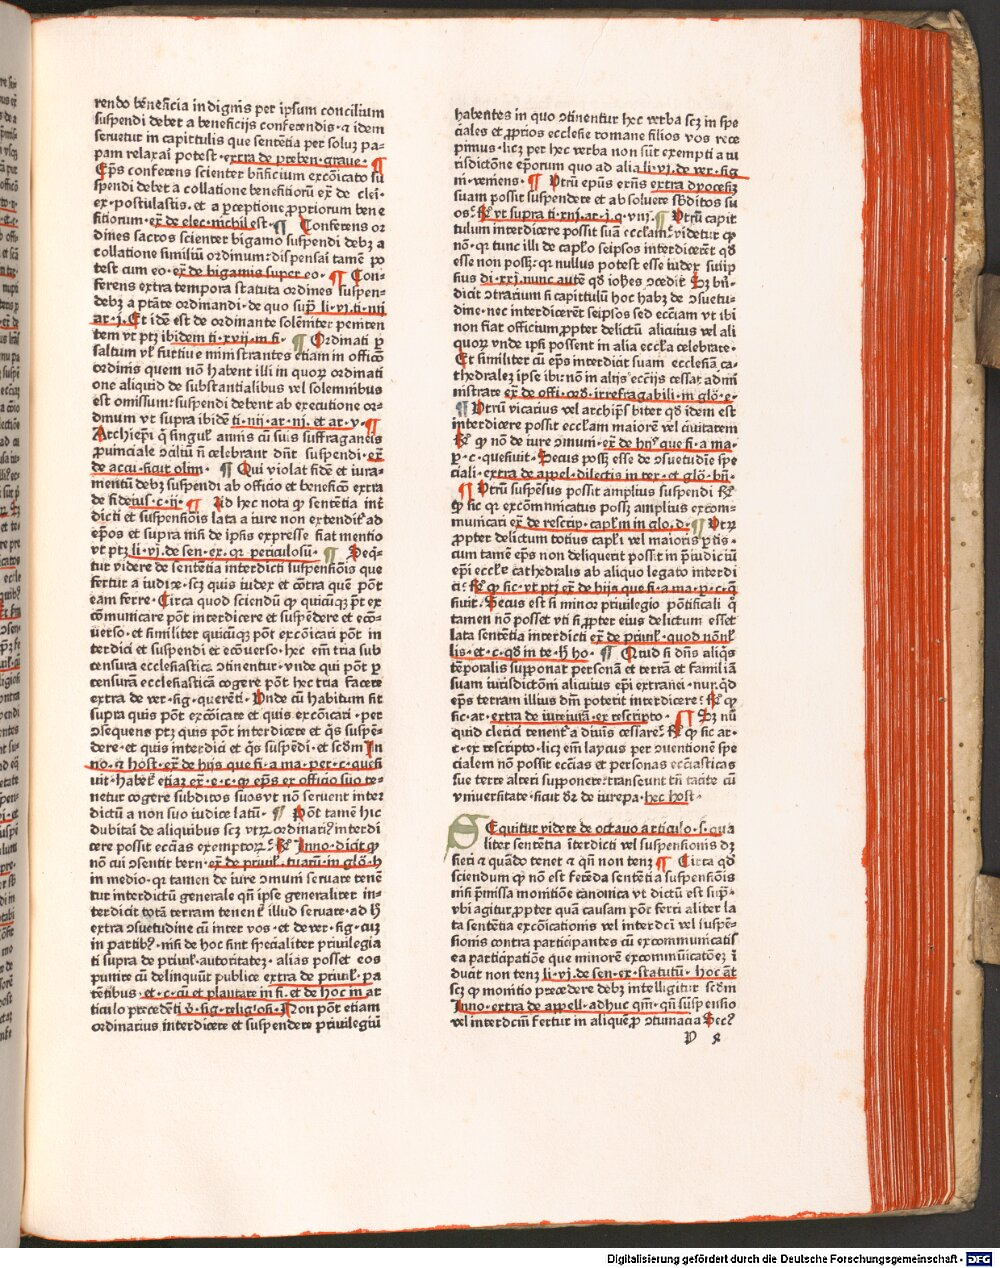 rendo bēneficia indignis per ipsum concilium
suspendi debet a beneficijs conferendis · ⁊ idem
seruetur in capittulis que sentētia per soluȝ pa-
pam relaxai potest · extra de preben · graue · ¶
Ep̄s conferens scienter bn̄ficium excōicato su
spendi debet a collatione benefitiorū ex̄ de cleī ·
ex · postulastis · et a perceptione ꝓpriorum bene
fitiorum · ex̄ de elec · nichil est · ¶ Conferens or
dines sacros scienter bigamo suspendi debȝ a
collatione similiū ordinum : dispensai tamē po
test cum eo · ex̄ de bigamis super eo · ¶ Con-
ferens extra tempora statuta ordines suspen-
debȝ a ptāte ordinandi · de quo sup̄ li · vj · ti · iiij
ar · j · Et idē est de ordinante solēniter peniten
tem vt ptȝ ibidem ti · xvij · in fi · ¶ Ordinati p̄
saltum vl̓ furtiue ministrantes etiam in officō
ordinis quem nō habent illi in quorȝ ordinati
one aliquid de substantialibus vel solemnibus
est omissum : suspendi debent ab executione or-
dinum vt supra ibidē ti · iiij · ar · iij · et · ar · v · ¶
Archiepī q̄ singul̓ annis cū suis suffraganeis
ꝓuinciale ↄ̄ciliū n̄ celebrant dn̄t suspendi · ex̄
de accu · sicut olim · ¶ Qui violat fidē et iura-
mentū debȝ suspendi ab officio et beneficō extra
de fideius · c · ij · ¶ Ad hec nota ꝙ sentētia int̄
dicti et suspensiōis lata a iure non extendit̄ ad
ep̄os et supra nisi de ipsis expresse fiat mentio
vt ptȝ li · vj · de sen · ex · qr periculosū · ¶ Seq̄-
tur videre de sentētia interdicti suspensiōis que
fertur a iudice · scȝ quis iudex et cōtra quē pōt
eam ferre · Circa quod sciendū ꝙ quicūqȝ pōt ex
cōmunicare pōt interdicere et suspēdere et ecō-
uerso · et similiter quicūqȝ pōt excōicari pōt in
terdici et suspendi et ecōuerso · hec em̄ tria sub
censura ecclesiastica ↄ̄tinentur · vnde qui pōt p̄
censurā ecclesiasticā cogere pōt hec tria facere
extra de ver · sig · querēti · Unde cū habitum sit
supra quis pōt excōicare et quis excōicari · per
ↄ̄sequens ptȝ quis pōt interdicere et q̄s suspē-
dere · et quis interdici et q̄s suspēdi · et scd̄m In
no · ⁊ host · ex̄ de hijs que fi · a ma · per · c · quesi
uit · habet̄ etiaȝ ex̄ · e · c · ꝙ ep̄s ex officio suo te-
netur cogere subditos suos vt nō seruent inter
dictū a non suo iudice latū · ¶ Pōt tamē hic
dubitai de aliquibus scȝ vtrȝ ordinariꝰ interdi
cere possit ecc̄ias exemptorȝ : Rͫ Inno · dicit ꝙ
nō cui ↄ̄sentit bern · ex̄ de priuil̓ · tuarū · in glō · h
in medio · qr tamen de iure ↄ̄muni seruare tenē
tur interdictū generale qn̄ ipse generaliter in-
terdicit totā terram tenent̄ illud seruare · ad h̄
extra ↄ̄suetudine cū inter vos · et de ver · sig · cuȝ
in partibꝰ · nisi de hoc sint specialiter priuilegia
ti supra de priuil̓ · autoritateȝ · alias posset eos
punire cū delinquūt publice extra de priuil̓ · pa
rētibus · et · c · cū et plantare in fi · et de hoc in ar
ticulo precedēti v̄ · sig · religiosi · Non pōt etiam
ordinarius interdicere et suspendere priuilegiū
habentes in quo ↄ̄tinentur hec verba scȝ in spe
ciales et ꝓprios ecclesie romane filios vos rece
pimus · licȝ per hec verba non sūt exempti a iu
risdictōne ep̄orum quo ad alia li · vj · de ver · sig
ni · veniens · ¶ Utrū ep̄us exn̄s extra dyocesiȝ
suam possit suspendere et absoluere sb̄ditos su
os : Rͫ vt supra ti · xxj · ar · j · q · viij · ¶ Utrū capit
tulum interdicere possit suā ecclam̄ : videtur ꝙ
nō · qr tunc illi de caplo̓ seipsos interdicerēt qd̓
esse non possȝ : qr nullus potest esse iudex sui ip
sius di · xxj · nunc autē qd̓ iohēs ↄ̄cedit Sȝ bn̄ ·
dicit ↄ̄trarium si capittulū hoc habȝ de ↄ̄suetu
dine · nec interdicerēt seipsos sed ecc̄iam vt ibi
non fiat officium ꝓpter delictū alicuius vel ali
quorȝ vnde ipsi possent in alia eccl̓a celebrare ·
Et similiter cū ep̄s interdicit suam ecclesiā ca-
thedraleȝ ipse ibi nō in alijs ecc̄ijs cessat admī
nistrare ex̄ de offi · ord̓ · irrefragabili in glō · e ·
¶ Utrū vicarius vel archip̄s biter qd̓ idem est
interdicere possit eccl̓am maiorē vel ciuitatem
Rͫ ꝙ nō de iure ↄ̄muni · ex̄ de hijꝰ que fi · a ma ·
p̄ · c · quesiuit · Secus possȝ esse de ↄ̄suetudīe spe
ciali · extra de appel · dilectis in tex · et glō · bn̄ ·
¶ Utrū suspēsus possit amplius suspendi Rͫ ·
ꝙ sic qr excōmunicatus possȝ amplius excom-
municari ex̄ de rescrip · capl̓m in glo · d · ¶ Utrȝ
ꝓpter delictum totius capl̓i vel maioris p̄tis ·
cum tamē ep̄s non deliquerit possit in p̄iudiciū
epī eccl̓e cathedralis ab aliquo legato interdi
ci : Rͫ ꝙ sic · vt ptȝ ex̄ de hijs que fi · a ma · p · c · q̄
siuit · Secus est si minor priuilegio pōtificali q̄
tamen nō posset vti si ꝓpter eius delictum esset
lata sentētia interdicti ex̄ de priuil̓ · quod nōnl̓
lis · et · c · qd̓ in te · h̄ ho · ¶ Quid si dn̄s aliq̄s
tēporalis supponat personā et terrā et familiā
suam iurisdictōni alicuius epī extranei · nuȝqd̓
ep̄s terram illius dn̄i poterit interdicere : Rͫ ꝙ
sic · ar · extra de iureiurā · ex rescripto · ¶ Sȝ nū
quid clerici tenent̄ a diuis cessare : Rͫ ꝙ sic ar ·
c · ex rescripto · licȝ em̄ laycus per ↄ̄uentionē spe
cialem nō possit ecc̄ias et personas ecc̄iasticas
sue terre alteri supponere : transeunt tn̄ tacite cū
vniuersitate · sicut dr̄ de iurepa · hec host ·
SEquitur videre de octauo articulo · s · qua
liter sentētia īterdicti vel suspensionis dȝ
fieri ⁊ quādo tenet ⁊ qn̄ non tenȝ ¶ Circa qd̓
sciendum ꝙ nō est ferēda sentētia suspensiōis
nisi p̄missa monitiōe canonica vt dictū est sup̄ ·
vbi agitur ꝓpter quā causam pōt ferri aliter la
ta sentētia excōicationis vel interdcī vel suspē-
sionis contra participantes cū excommunicatis
ea participatiōe que minorē excomunicatōeȝ ī
ducit non tenȝ li · vj · de sen · ex · statutū · Hoc āt
scȝ ꝙ monitio precedere debȝ intelligitur scd̄m
Inno · extra de appell · adhuc qm̄ · qn̄ suspensio
vel interdcm̄ fertur in aliquē ꝓ ↄ̄tumacia Secꝰ